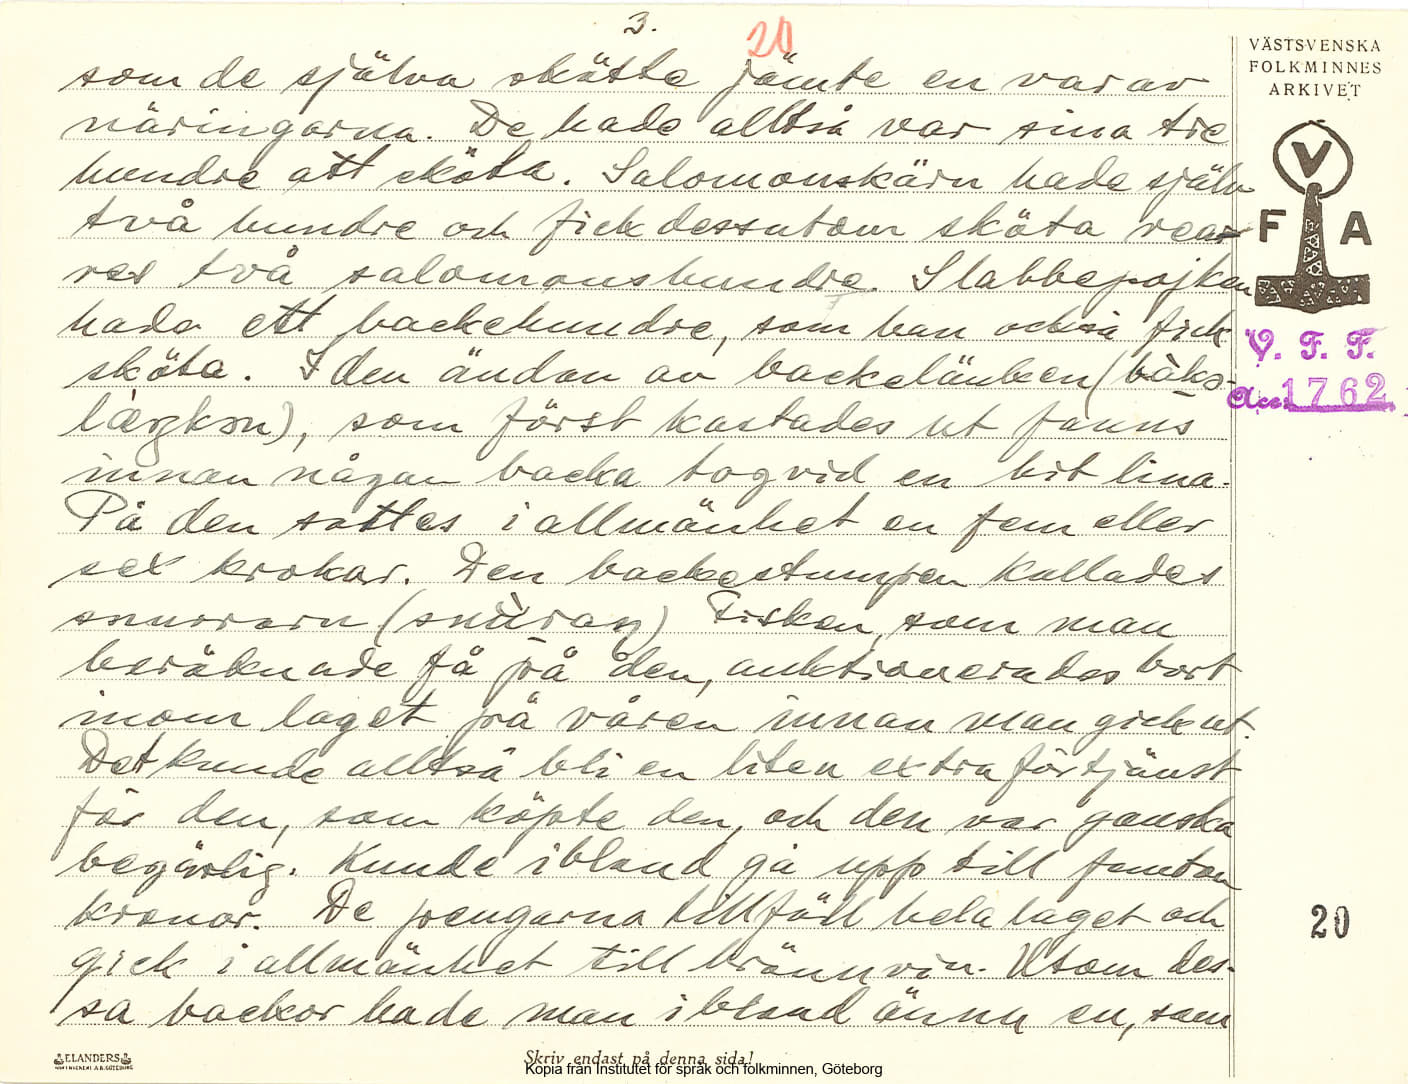 3.
20
VÄSTSVENSKA
FOLKMINNES
ARKIVET
V
F A
V. F. F.
Acc. 1762
som de själva skötte jämte en var av
näringarna. De hade alltså var sina tre
hundre att sköta. Salomonskärn hade själv
två hundre och fick dessutom sköta vear
res två salomonshundre. Slabbepojken
hade ett backehundre, som han också fick
sköta. I den ändan av backelänken (bàks-
lægkon), som först kastades ut fanns
innan någon backa tog vid en bit lina.
På den sattes i allmänhet en fem eller
sex krokar. Den backestumpen kallades
snurrarn (snùraṇ) Fisken, som man
beräknade få på den, auktionerades bort
inom laget på våren innan man gick ut.
Det kunde alltså bli en liten extra förtjänst
för den, som köpte den, och den var ganska
begärlig. Kunde ibland gå upp till femton
kronor. De pengarna tillföll hela laget och
gick i allmänhet till brännvin. Utom des-
sa backor hade man ibland ännu en, som
20
ELANDERS
Skriv endast på denna sida!
Kopia från Institutet för språk och folkminnen, Göteborg